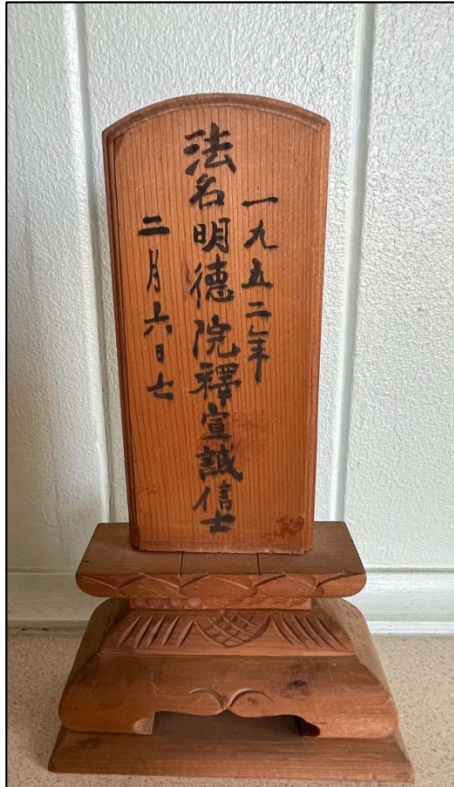 一九五二年
法名明徳院釋宣誠信士
二月六日亡